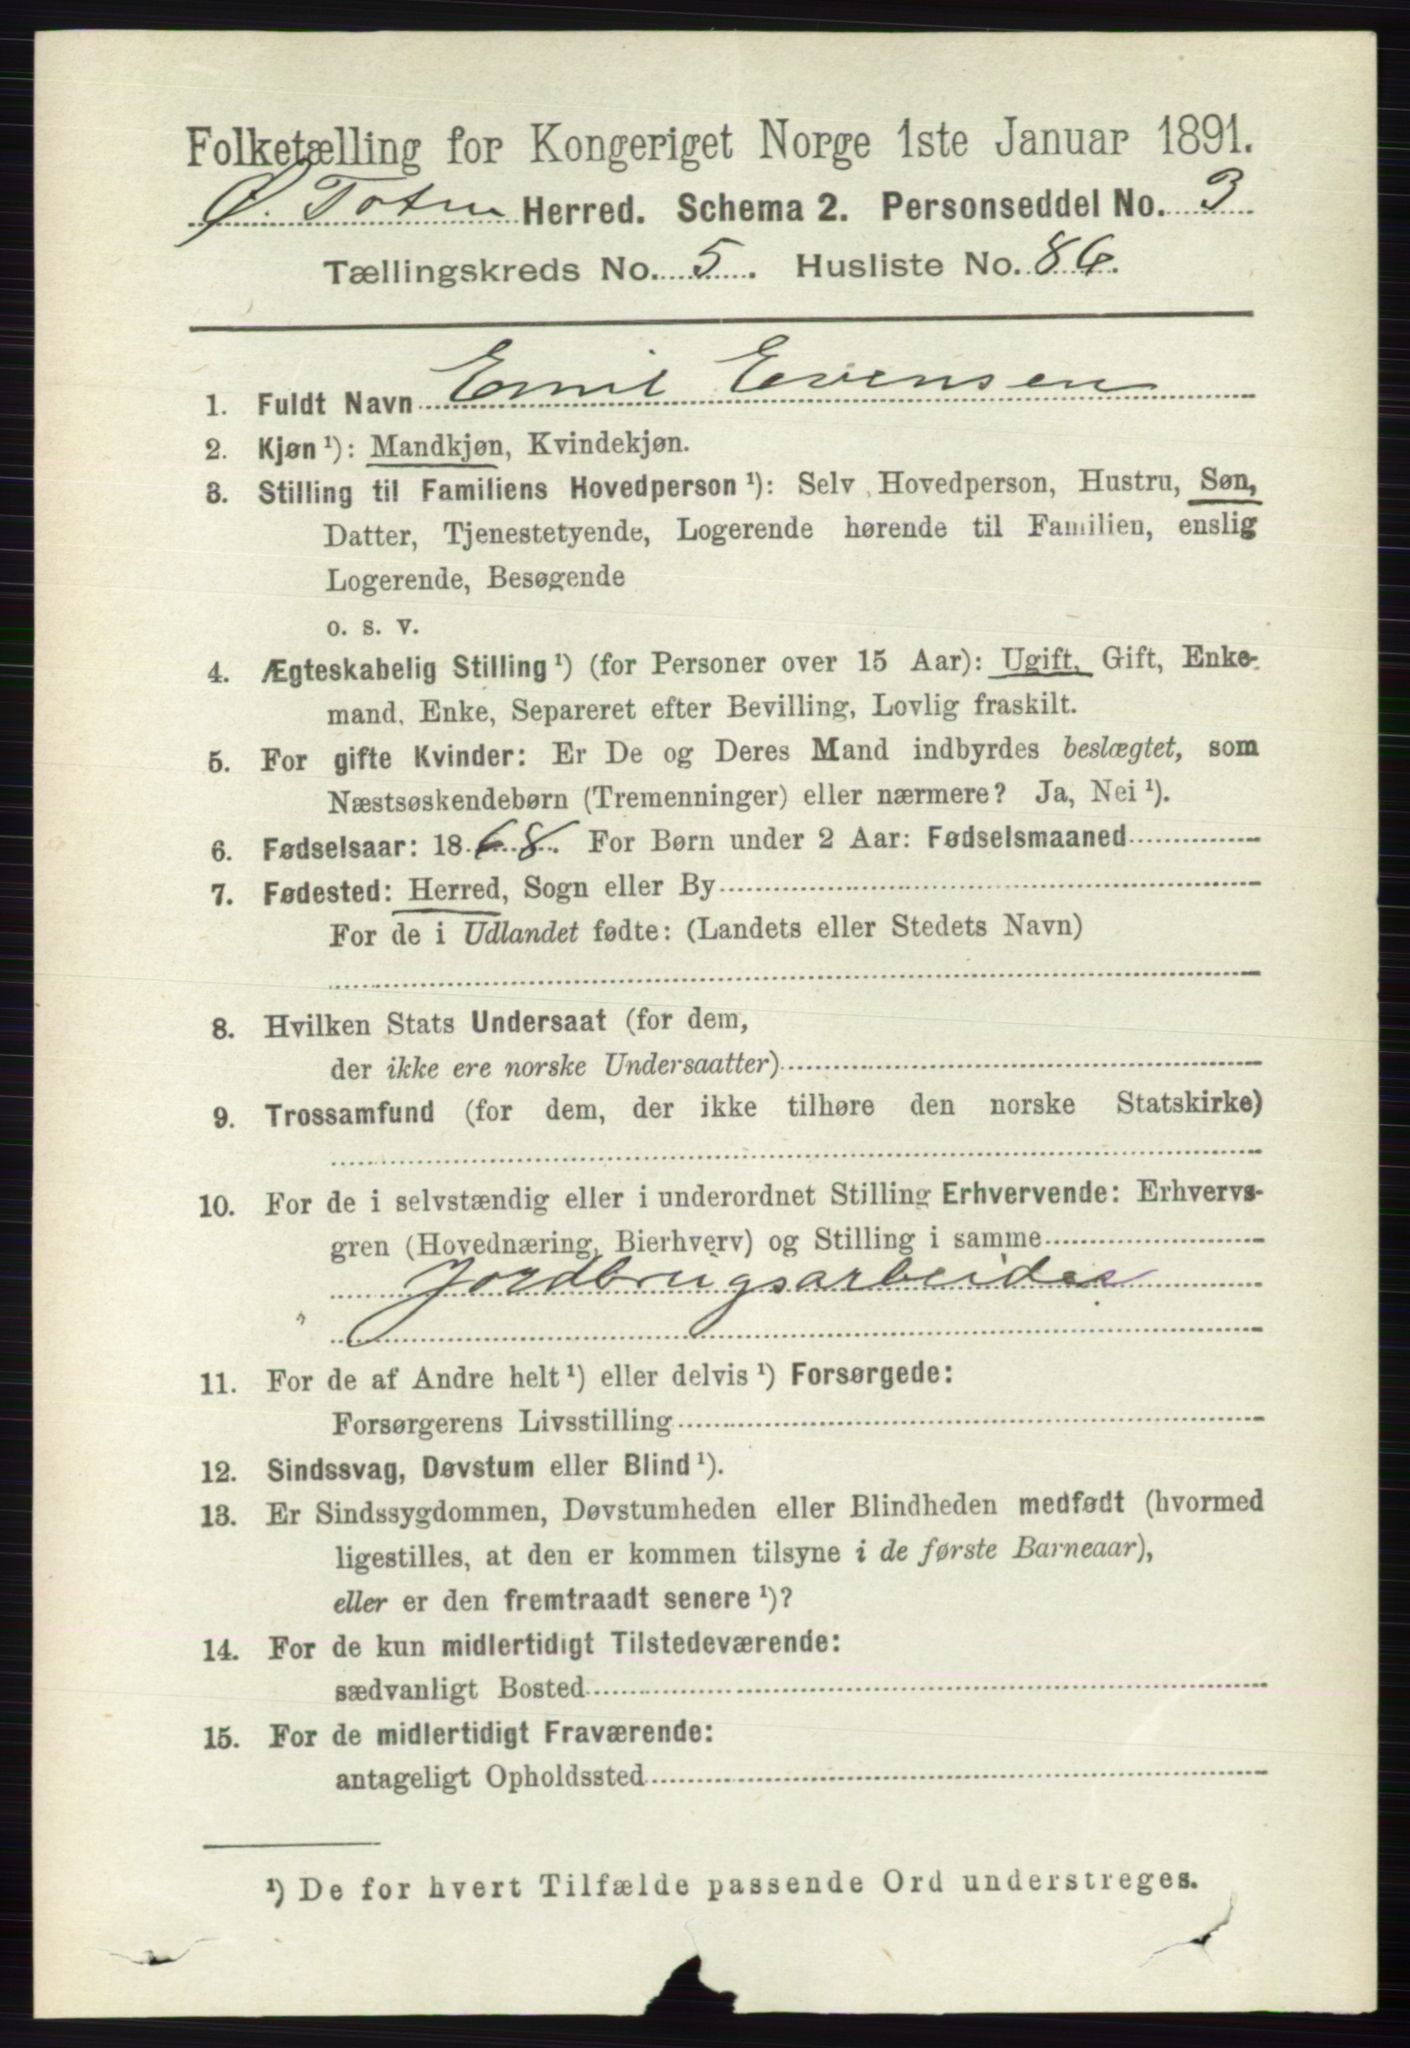 Folketælling for Kongeriget Norge 1ste Januar 1891.
Ø. Toten Herred. Schema 2. Personseddel No. 3
Tællingskreds No. 5. Husliste No. 86.
1. Fuldt Navn Emil Evensen
2. Kjøn¹): Mandkjøn, Kvindekjøn.
3. Stilling til Familiens Hovedperson¹): Selv Hovedperson, Hustru, Søn,
Datter, Tjenestetyende, Logerende hørende til Familien, enslig
Logerende, Besøgende
o. s. v.
4. Ægteskabelig Stilling¹) (for Personer over 15 Aar): Ugift, Gift, Enke-
mand, Enke, Separeret efter Bevilling, Lovlig fraskilt.
5. For gifte Kvinder: Er De og Deres Mand indbyrdes beslægtet, som
Næstsøskendebørn (Tremenninger) eller nærmere? Ja, Nei¹).
6. Fødselsaar: 1868. For Børn under 2 Aar: Fødselsmaaned
7. Fødested: Herred, Sogn eller By
For de i Udlandet fødte: (Landets eller Stedets Navn)
8. Hvilken Stats Undersaat (for dem,
der ikke ere norske Undersaatter)
9. Trossamfund (for dem, der ikke tilhøre den norske Statskirke)
10. For de i selvstændig eller i underordnet Stilling Erhvervende: Erhvervs-
gren (Hovednæring, Bierhverv) og Stilling i samme
Jordbrugsarbeider
11. For de af Andre helt¹) eller delvis¹) Forsørgede:
Forsørgerens Livsstilling
12. Sindssvag, Døvstum eller Blind¹).
13. Er Sindssygdommen, Døvstumheden eller Blindheden medfødt (hvormed
ligestilles, at den er kommen tilsyne i de første Barneaar),
eller er den fremtraadt senere¹)?
14. For de kun midlertidigt Tilstedeværende:
sædvanligt Bosted
15. For de midlertidigt Fraværende:
antageligt Opholdssted
¹) De for hvert Tilfælde passende Ord understreges.